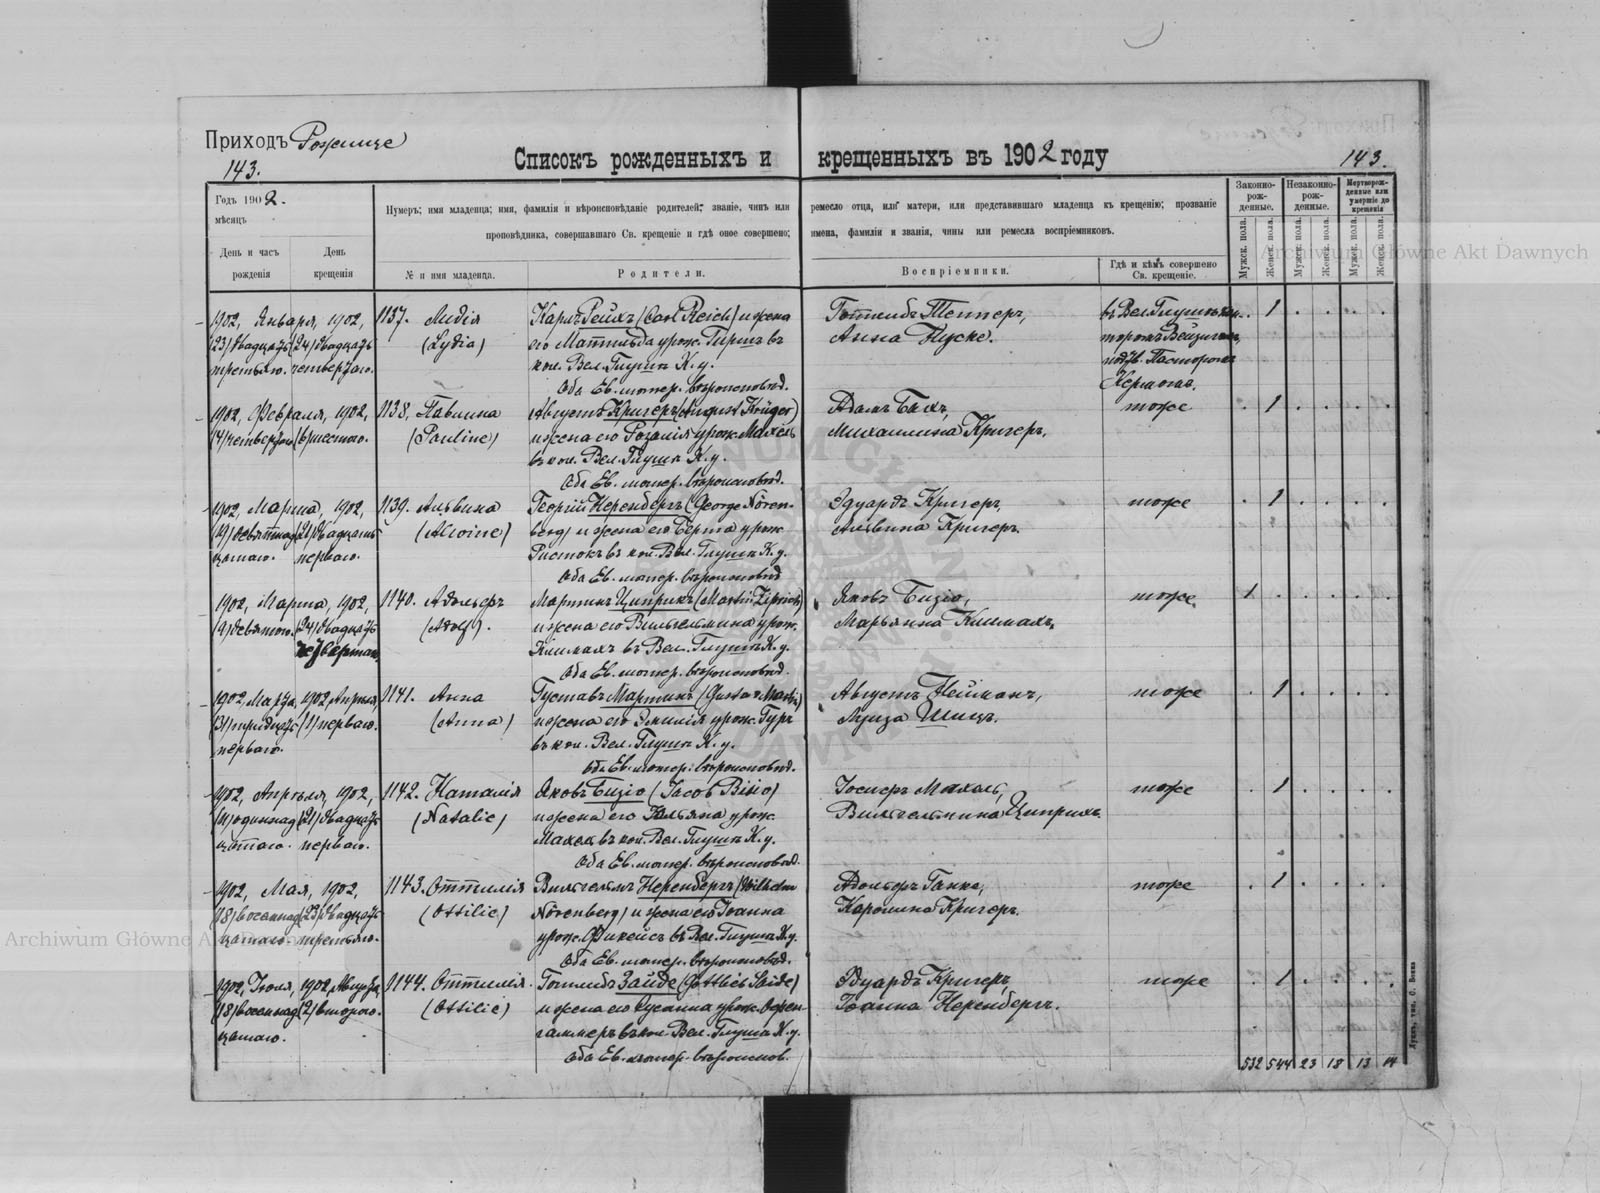 Приходъ Рожище
143.
Списокъ рожденныхъ и крещенныхъ въ 1902 году
143.
Годъ 1902.
мѣсяцъ
День и часъ рожденія
День крещенія
Нумеръ; имя младенца; имя, фамилія и вѣроисповѣданіе родителей; званіе, чинъ или ремесло отца, или матери, или представившаго младенца къ крещенію; прозваніе
проповѣдника, совершавшаго Св. крещеніе и гдѣ оное совершено; имена, фамиліи и званія, чины или ремесла воспріемниковъ.
№ и имя младенца.
Родители.
Воспріемники.
Гдѣ и кѣмъ совершено Св. крещеніе.
Законно-рож-денные.
Незаконно-рож-денные.
Мертворож-денные или умершіе до крещенія
Мужск. пола. Женск. пола. Мужск. пола. Женск. пола. Мужск. пола. Женск. пола.
1902, Января, 1902, 1137. Лидія Карлъ Рейхъ (Carl Reich) и жена Готтлибъ Тепперъ, въ Вел. Глушѣ 1
(23) двадцать (24) двадцать (Lydia) его Матильда урож. Гиршъ въ Анна Пуске.
третьяго. четвертаго. кол. Вел. Глуша К. у. Пасторомъ
Оба Ев. лютер. вѣроисповѣд.
1902, Февраля, 1902, 1138. Павлина Августъ Кригеръ (August Krüger) Адамъ Бахъ, тоже 1
(4) четвертаго (6) шестого. (Pauline) и жена его Розалія урож. Махель Михалина Кригеръ.
въ кол. Вел. Глуша К. у.
Оба Ев. лютер. вѣроисповѣд.
1902, Марта, 1902, 1139. Альвина Георгій Неренбергъ (George Nören- Эдуардъ Кригеръ, тоже 1
(19) девятнад (21) двадцать (Alwine) berg) и жена его Берта урож. Альвина Кригеръ.
цатаго. перваго. Ристокъ въ кол. Вел. Глуша К. у.
Оба Ев. лютер. вѣроисповѣд
1902, Марта, 1902, 1140. Адольфъ Мартинъ Циприхъ (Martin Ziprich) Яковъ Бизіо, тоже 1
(9) девятого. (24) двадцать (Adolf). и жена его Вильгельмина урож. Марьянна Климахъ.
четвертаго. Климахъ въ Вел. Глушѣ К. у.
Оба Ев. лютер. вѣроисповѣд.
1902, Марта, 1902 Апрѣля, 1141. Анна Густавъ Мартинъ (Gustav Martin) Августъ Нейманъ, тоже 1
(31) тридцать (1) перваго. (Anna) и жена его Эмилія урож. Гуръ Луиза Шицъ.
перваго. въ кол. Вел. Глуша К. у.
Оба Ев. лютер. вѣроисповѣд.
1902, Апрѣля, 1902, 1142. Наталія Яковъ Бизіо (Jacob Bisio) Іосифъ Махель, тоже 1
(11) одиннад (21) двадцать (Natalie) и жена его Юльяна урож. Вильгельмина Циприхъ.
цатаго. перваго. Махель въ кол. Вел. Глуша К. у.
Оба Ев. лютер. вѣроисповѣд.
1902, Мая, 1902, 1143. Оттилія Вильгельмъ Неренбергъ (Wilhelm Адольфъ Ганке, тоже 1
(18) восемнад (23) двадцать (Ottilie) Nörenberg) и жена его Іоанна Каролина Кригеръ.
цатаго. третьяго. урож. Фикейсъ въ Вел. Глуша К. у.
Оба Ев. лютер. вѣроисповѣд.
1902, Іюля, 1902, Августа, 1144. Оттилія. Готлибъ Зайде (Gottlieb Saide) Эдуардъ Кригеръ, тоже 1
(18) восемнад (2) второго. (Ottilie) и жена его Сусанна урож. Офен- Іоанна Неренбергъ.
цатаго. гаммеръ въ кол. Вел. Глуша К. у.
Оба Ев. лютер. вѣроиспов.
532 544 23 18 13 14
Луцкъ, тип. С. Бонка
Archiwum Główne Akt Dawnych
Archiwum Główne Akt Dawnych